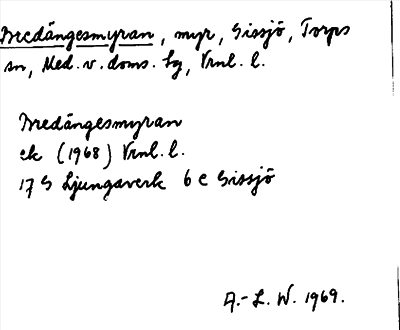 Bredängesmyran, myr, Gissjö, Torps
sn, Med. v. doms. hg, Vrnl. l.
Bredängesmyran
ek (1968) Vrnl. l.
17 G Ljungaverk 6 c Gissjö
A.-L. W. 1969.